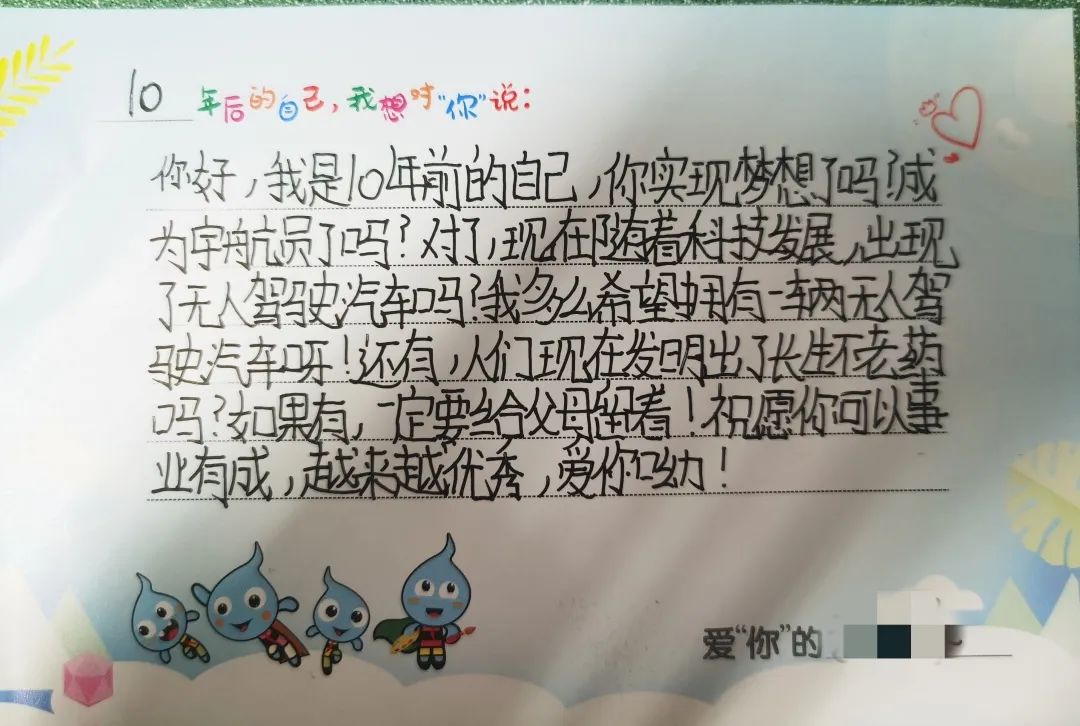 10 年后的自己,我想对“你”说:
你好,我是10年前的自己,你实现梦想了吗?成
为宇航员了吗?对了,现在随着科技发展,出现
了无人驾驶汽车吗?我多么希望拥有一车两无人驾
驶汽车呀!还有,人们现在发明出了长生不老药
吗?如果有,一定要给父母留着!祝愿你可以事
业有成,越来越优秀,爱你呦!
爱“你”的